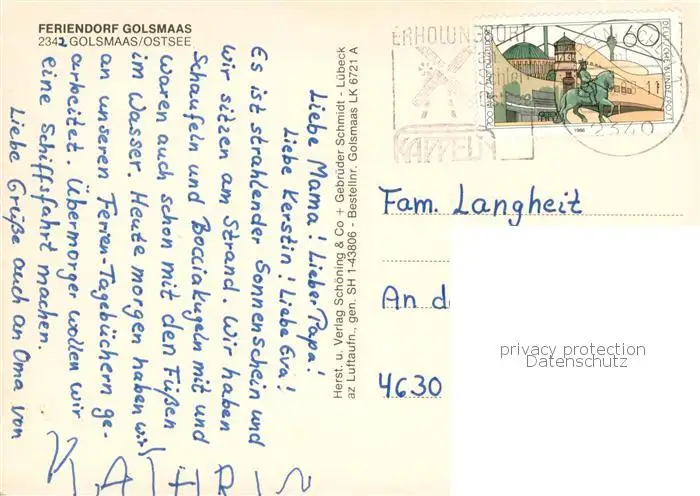 FERIENDORF GOLSMAAS
2342 GOLSMAAS/OSTSEE
Liebe Mama! Lieber Papa!
Liebe Kerstin! Liebe Eva!
Es ist strahlender Sonnenschein und
wir sitzen am Strand. Wir haben
Schaufeln und Bocciakugeln mit und
waren auch schon mit den Füßen
im Wasser. Heute morgen haben wir
an unseren Ferien-Tagebüchern ge-
arbeitet. Übermorgen wollen wir
eine Schiffsfahrt machen.
Liebe Grüße auch an Oma von
Herst. u. Verlag Schöning & Co + Gebrüder Schmidt - Lübeck
az Luftaufn., gen. SH 1-43806 - Bestellnr. Golsmaas LK 6721 A
ERHOLUNGSORT
KAPPELN
2340
60
DEUTSCHE BUNDESPOST
1988
Fam. Langheit
An de
4630
privacy protection
Datenschutz